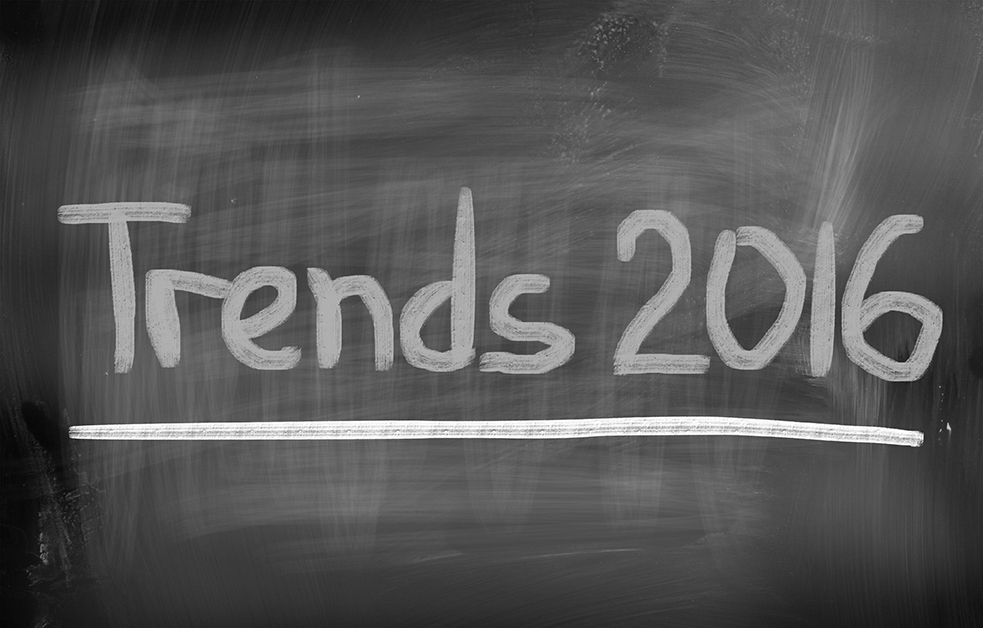 Trends 2016